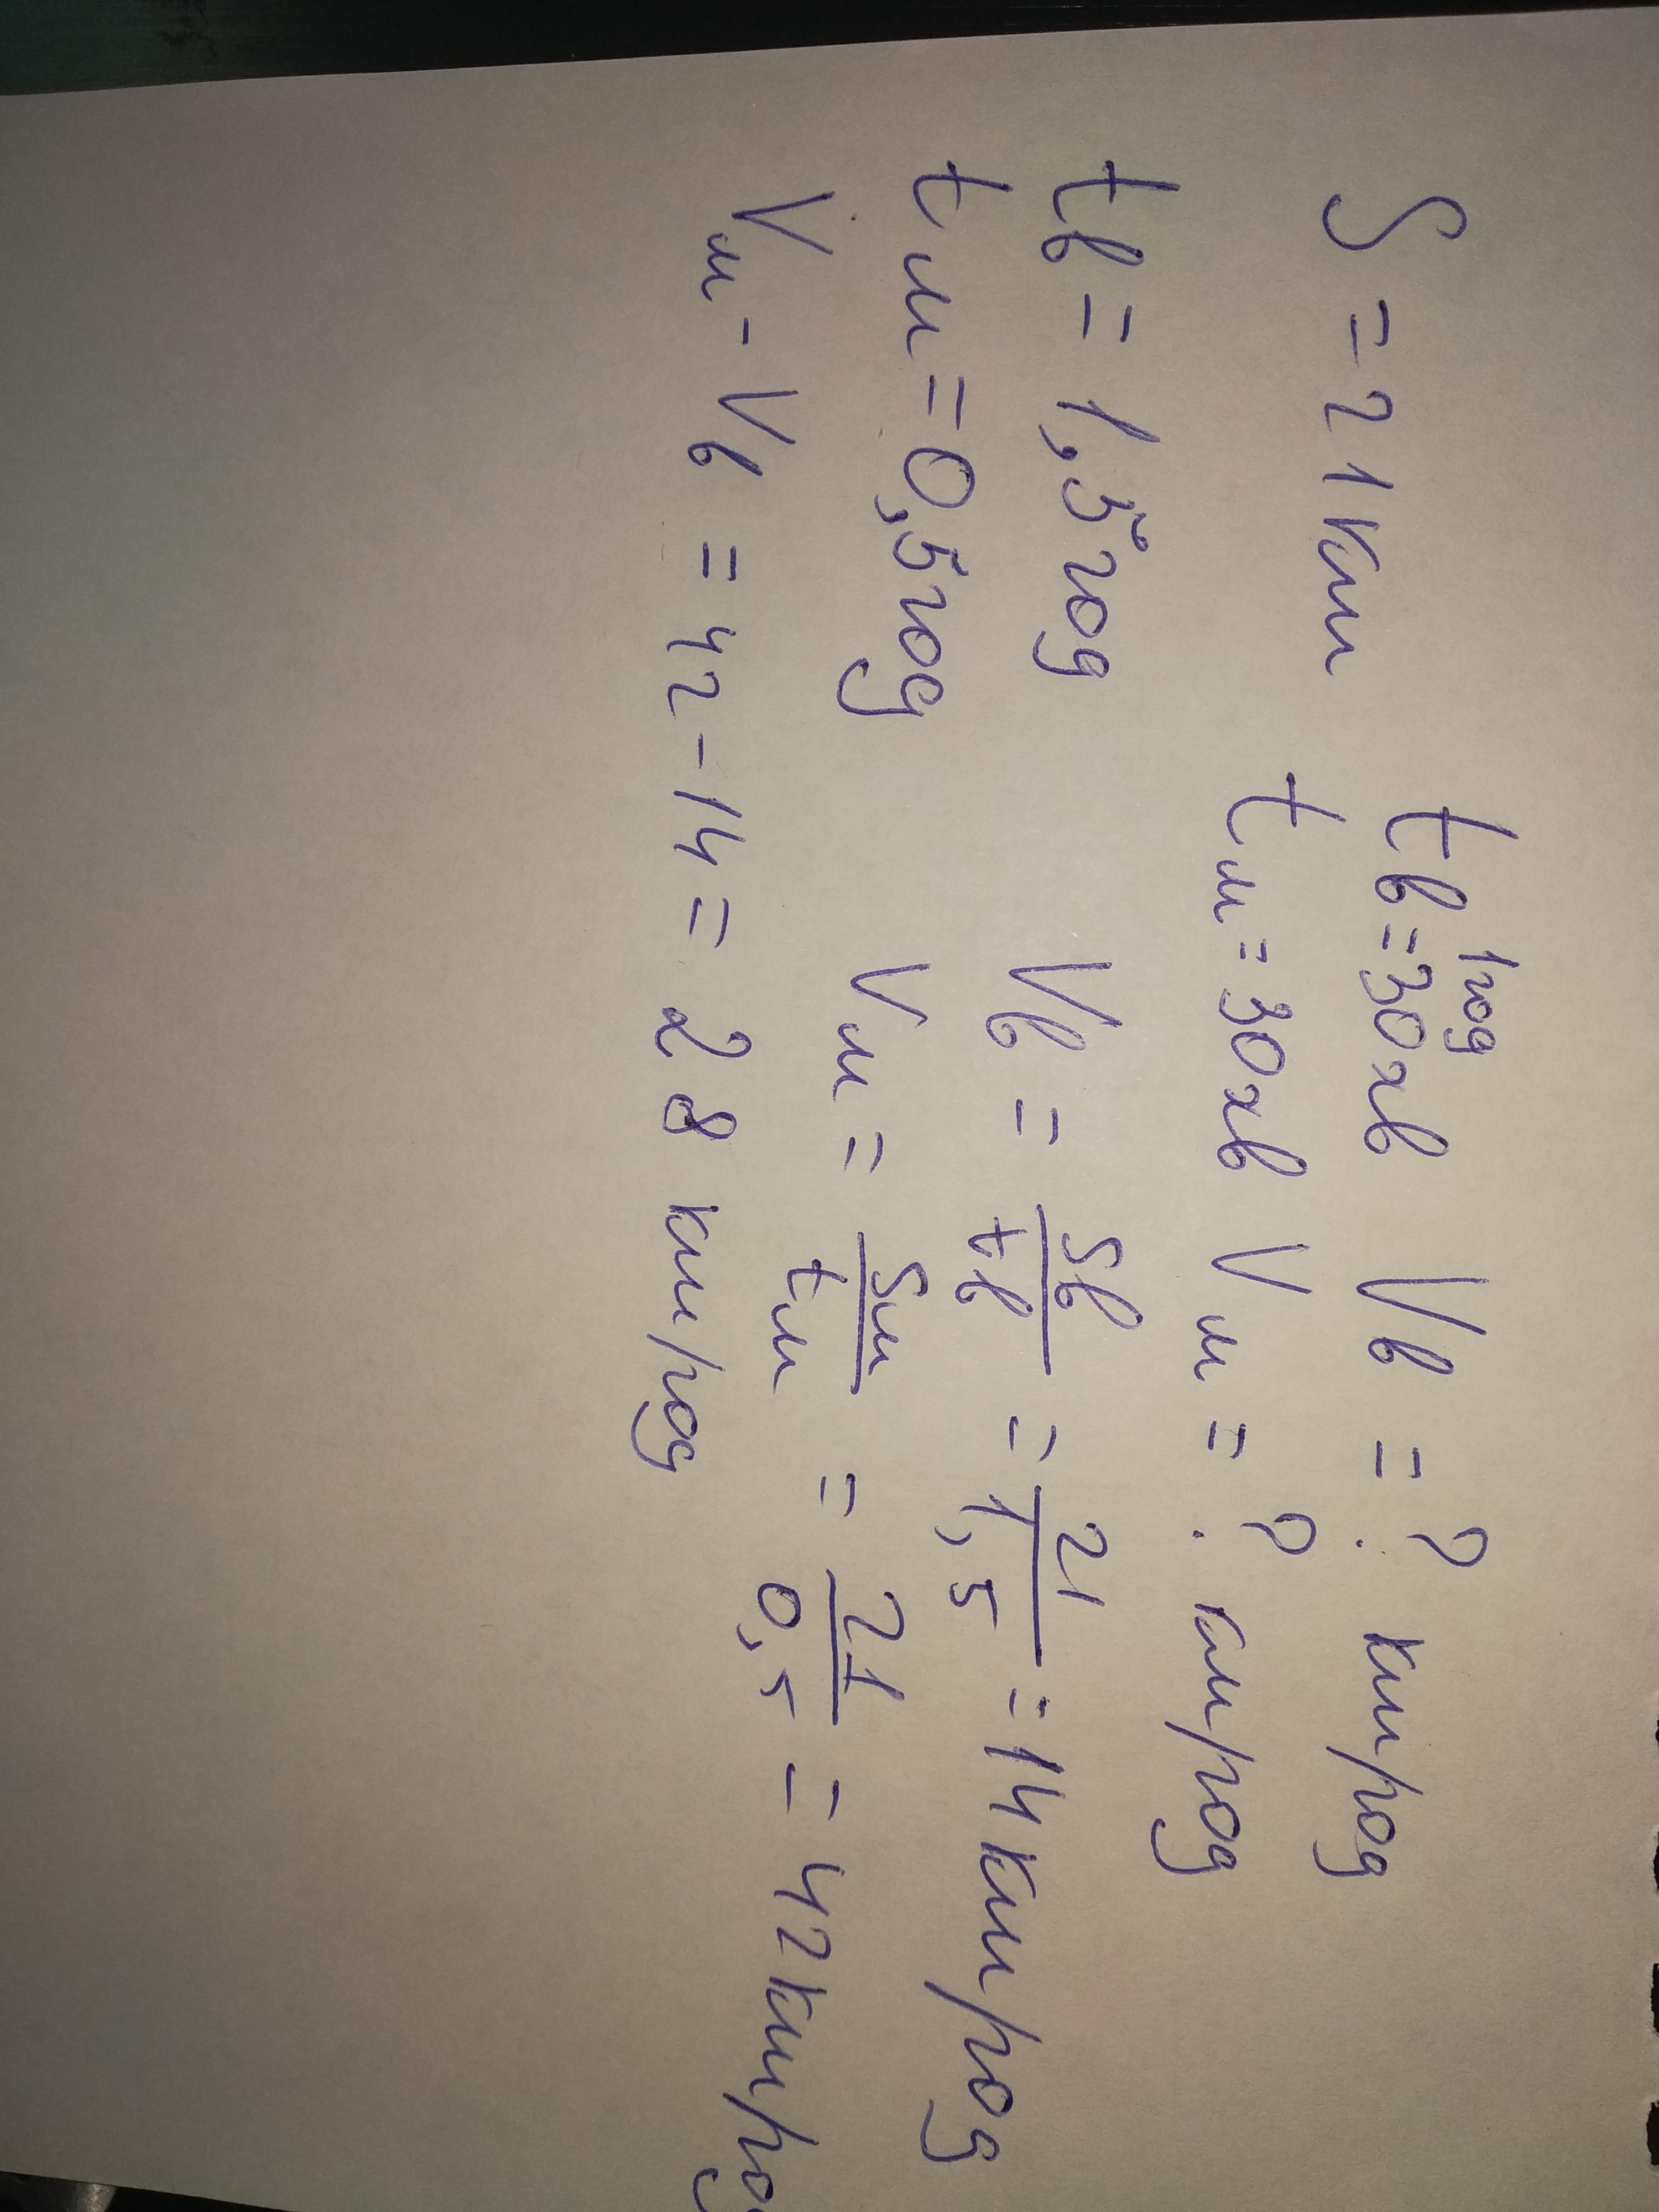 S = 21км
1год
tв=30хв Vв = ? км/год
tм=30хв Vм = ? км/год
tв = 1,5год
Vв = Sв/tв = 21/1,5 = 14км/год
tм = 0,5год
Vм = Sм/tм = 21/0,5 = 42км/го
Vм - Vв = 42-14 = 28 км/год